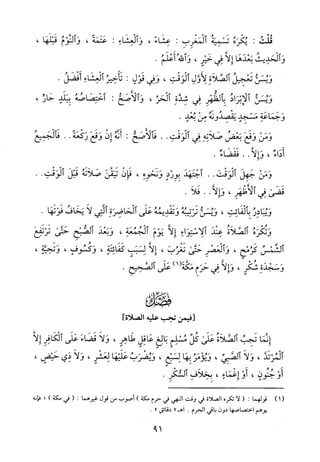 قُلْتُ : يُكْرَهُ تَسْمِيَةُ الْمَغْرِبِ : عِشَاءً ، وَالْعِشَاءِ : عَتَمَةً ، وَالنَّوْمُ قَبْلَهَا ،
وَالْحَدِيثُ بَعْدَهَا إِلاَّ فِي خَيْرٍ ، وَاللهُ أَعْلَمُ .
وَيُسَنُّ تَعْجِيلُ الصَّلاَةِ لأَوَّلِ الْوَقْتِ ، وَفِي قَوْلٍ : تَأْخِيرُ الْعِشَاءِ أَفْضَلُ .
وَيُسَنُّ الإِبْرَادُ بِالظُّهْرِ فِي شِدَّةِ الْحَرِّ ، وَالأَصَحُّ : اخْتِصَاصُهُ بِبَلَدٍ حَارٍّ ،
وَجَمَاعَةِ مَسْجِدٍ يَقْصِدُونَهُ مِنْ بُعْدٍ .
وَمَنْ وَقَعَ بَعْضُ صَلاَتِهِ فِي الْوَقْتِ .. فَالأَصَحُّ : أَنَّهُ إِنْ وَقَعَ رَكْعَةٌ .. فَالْجَمِيعُ
أَدَاءٌ ، وَإِلاَّ .. فَقَضَاءٌ .
وَمَنْ جَهِلَ الْوَقْتَ .. اجْتَهَدَ بِوِرْدٍ وَنَحْوِهِ ، فَإِنْ تَيَقَّنَ صَلاَتَهُ قَبْلَ الْوَقْتِ ..
قَضَىٰ فِي الأَظْهَرِ ، وَإِلاَّ .. فَلاَ .
وَيُبَادِرُ بِالْفَائِتِ ، وَيُسَنُّ تَرْتِيبُهُ وَتَقْدِيمُهُ عَلَى الْحَاضِرَةِ الَّتِي لاَ يَخَافُ فَوْتَهَا .
وَتُكْرَهُ الصَّلاَةُ عِنْدَ الاِسْتِوَاءِ إِلاَّ يَوْمَ الْجُمُعَةِ ، وَبَعْدَ الصُّبْحِ حَتَّىٰ تَرْتَفِعَ
الشَّمْسُ كَرُمْحٍ ، وَالْعَصْرِ حَتَّىٰ تَغْرُبَ ، إِلاَّ لِسَبَبٍ كَفَائِتَةٍ ، وَكُسُوفٍ ، وَتَحِيَّةٍ ،
وَسَجْدَةِ شُكْرٍ ، وَإِلاَّ فِي حَرَمِ مَكَّةَ(١) عَلَى الصَّحِيحِ .
فَصْلٌ
[فيمن تجب عليه الصلاة]
إِنَّمَا تَجِبُ الصَّلاَةُ عَلَىٰ كُلِّ مُسْلِمٍ بَالِغٍ عَاقِلٍ طَاهِرٍ ، وَلاَ قَضَاءَ عَلَى الْكَافِرِ إِلاَّ
الْمُرْتَدَّ ، وَلاَ الصَّبِيِّ ، وَيُؤْمَرُ بِهَا لِسَبْعٍ ، وَيُضْرَبُ عَلَيْهَا لِعَشْرٍ ، وَلاَ ذِي حَيْضٍ ،
أَوْ جُنُونٍ ، أَوْ إِغْمَاءٍ ، بِخِلاَفِ السُّكْرِ .
(١) قولهما : ( لا تكره الصلاة في وقت النهي في حرم مكة ) أصوب من قول غيرهما : ( في مكة ) ؛ فإنه
يوهم اختصاصها دون باقي الحرم . اهـ « دقائق » .
٩١